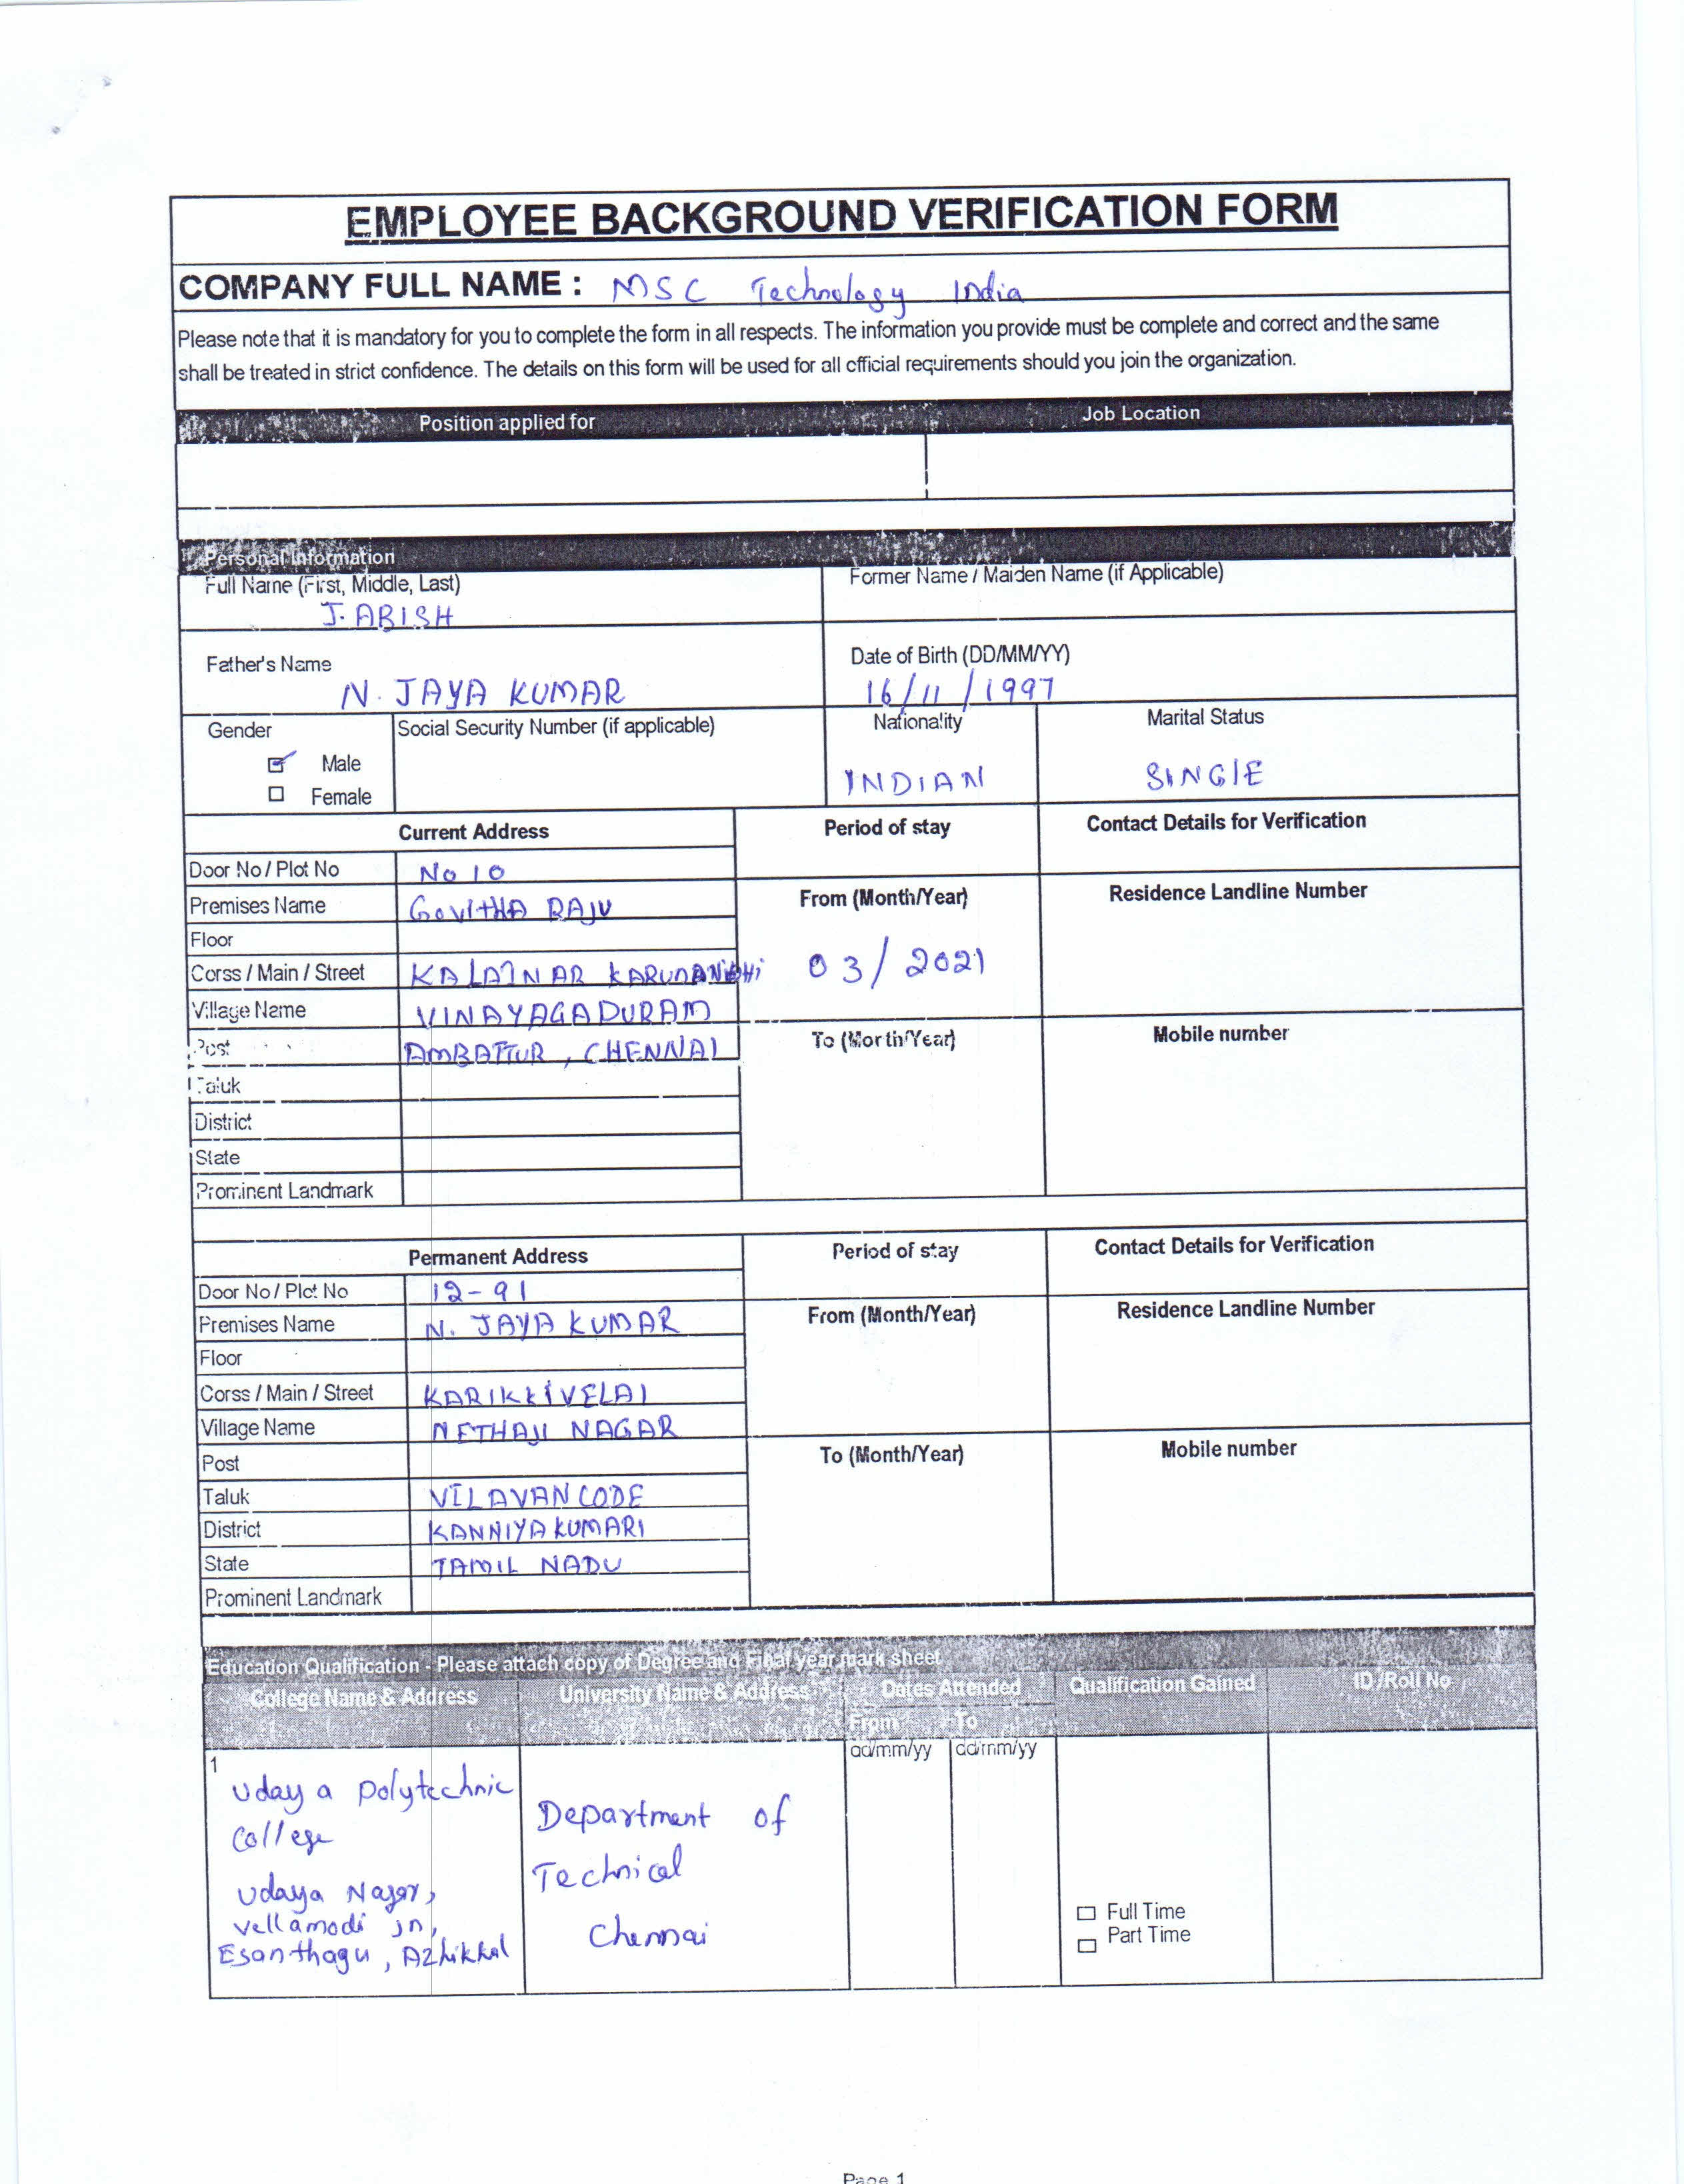 EMPLOYEE BACKGROUND VERIFICATION FORM
COMPANY FULL NAME : MSC Technology India
Please note that it is mandatory for you to complete the form in all respects. The information you provide must be complete and correct and the same
shall be treated in strict confidence. The details on this form will be used for all official requirements should you join the organization.
Position applied for Job Location
Personal Information
Full Name (First, Middle, Last) Former Name / Maiden Name (if Applicable)
J. ABISH
Father's Name Date of Birth (DD/MM/YY)
N. JAYA KUMAR 16/11/1997
Gender Social Security Number (if applicable) Nationality Marital Status
Male
INDIAN SINGlE
Female
Current Address Period of stay Contact Details for Verification
Door No / Plot No No 10
Premises Name GOVITHA RAJU From (Month/Year) Residence Landline Number
Floor
Corss / Main / Street KALAINAR KARUNANIDHI 03/2021
Village Name VINAYAGAPURAM
Post AMBATTUR, CHENNAI To (Month/Year) Mobile number
Taluk
District
State
Prominent Landmark
Permanent Address Period of stay Contact Details for Verification
Door No / Plot No 12-91
Premises Name N. JAYA KUMAR From (Month/Year) Residence Landline Number
Floor
Corss / Main / Street KARIKKIVELAI
Village Name NETHAJI NAGAR
Post To (Month/Year) Mobile number
Taluk VILAVANCODE
District KANNIYAKUMARI
State TAMIL NADU
Prominent Landmark
Education Qualification - Please attach copy of Degree and Final year mark sheet
College Name & Address University Name & Address Dates Attended Qualification Gained ID/Roll No
From To
1 dd/mm/yy dd/mm/yy
Udaya Polytechnic
College
Department of
Technical
Udaya Nagar,
Vellamodi jn,
Chennai
Full Time
Part Time
Esanthagu, Azhikkal
Page 1